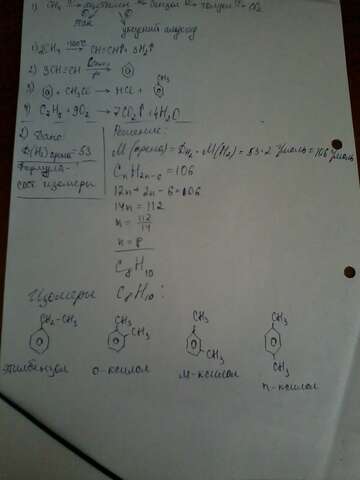 1) CH₄ → ацетилен → бензол → толуол → CO₂
уксусный альдегид
1) 2CH₄ —1500°C→ CH≡CH + 3H₂↑
2) 3CH≡CH →
3) + CH₃Cl → HCl +
CH₃
4) C₇H₈ + 9O₂ → 7CO₂↑ + 4H₂O
2) Дано:
D(H₂) арена = 53
Формула-
сост. изомеры
Решение:
M(арена) = D H₂ · M(H₂) = 53 · 2 г/моль = 106 г/моль
CₙH₂ₙ₋₆ = 106
12n + 2n - 6 = 106
14n = 112
n = 112/14
n = 8
C₈H₁₀
Изомеры C₈H₁₀:
CH₂-CH₃ CH₃ CH₃ CH₃
CH₃ CH₃ CH₃
этилбензол о-ксилол м-ксилол п-ксилол